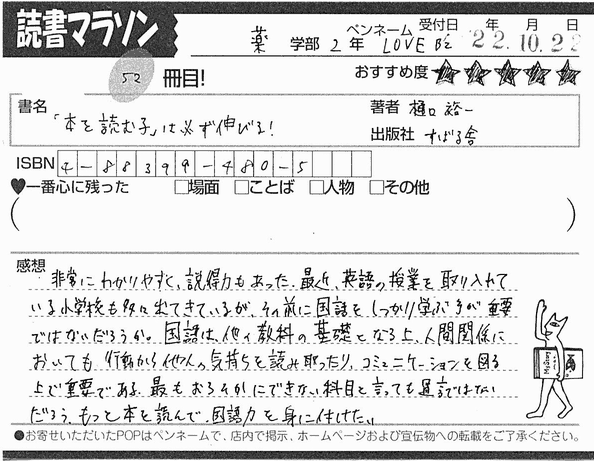 読書マラソン
薬 学部 2年 ペンネーム LOVE B'z 受付日 '22.10.22 年 月 日
52 冊目! おすすめ度 ★★★★★
書名 「本を読む子」は必ず伸びる! 著者 樋口裕一
出版社 すばる舎
ISBN 4-88399-480-5
♥一番心に残った □場面 □ことば □人物 □その他
( )
感想
非常にわかりやすく、説得力もあった。最近、英語の授業を取り入れて
いる小学校も多々出てきているが、その前に国語をしっかり学ぶ事が重要
ではないだろうか。国語は、他の教科の基礎となる上、人間関係に
おいても行動から他人の気持ちを読み取ったり、コミュニケーションを図る
上で重要である。最もおろそかにできない科目と言っても過言ではない
だろう。もっと本を読んで、国語力を身に付けたい。
●お寄せいただいたPOPはペンネームで、店内で掲示、ホームページおよび宣伝物への転載をご了承ください。